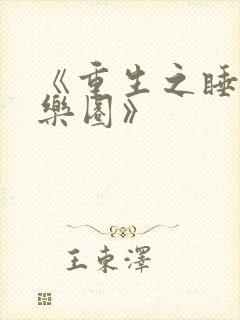 《重生之睡
樂園》
王東澤